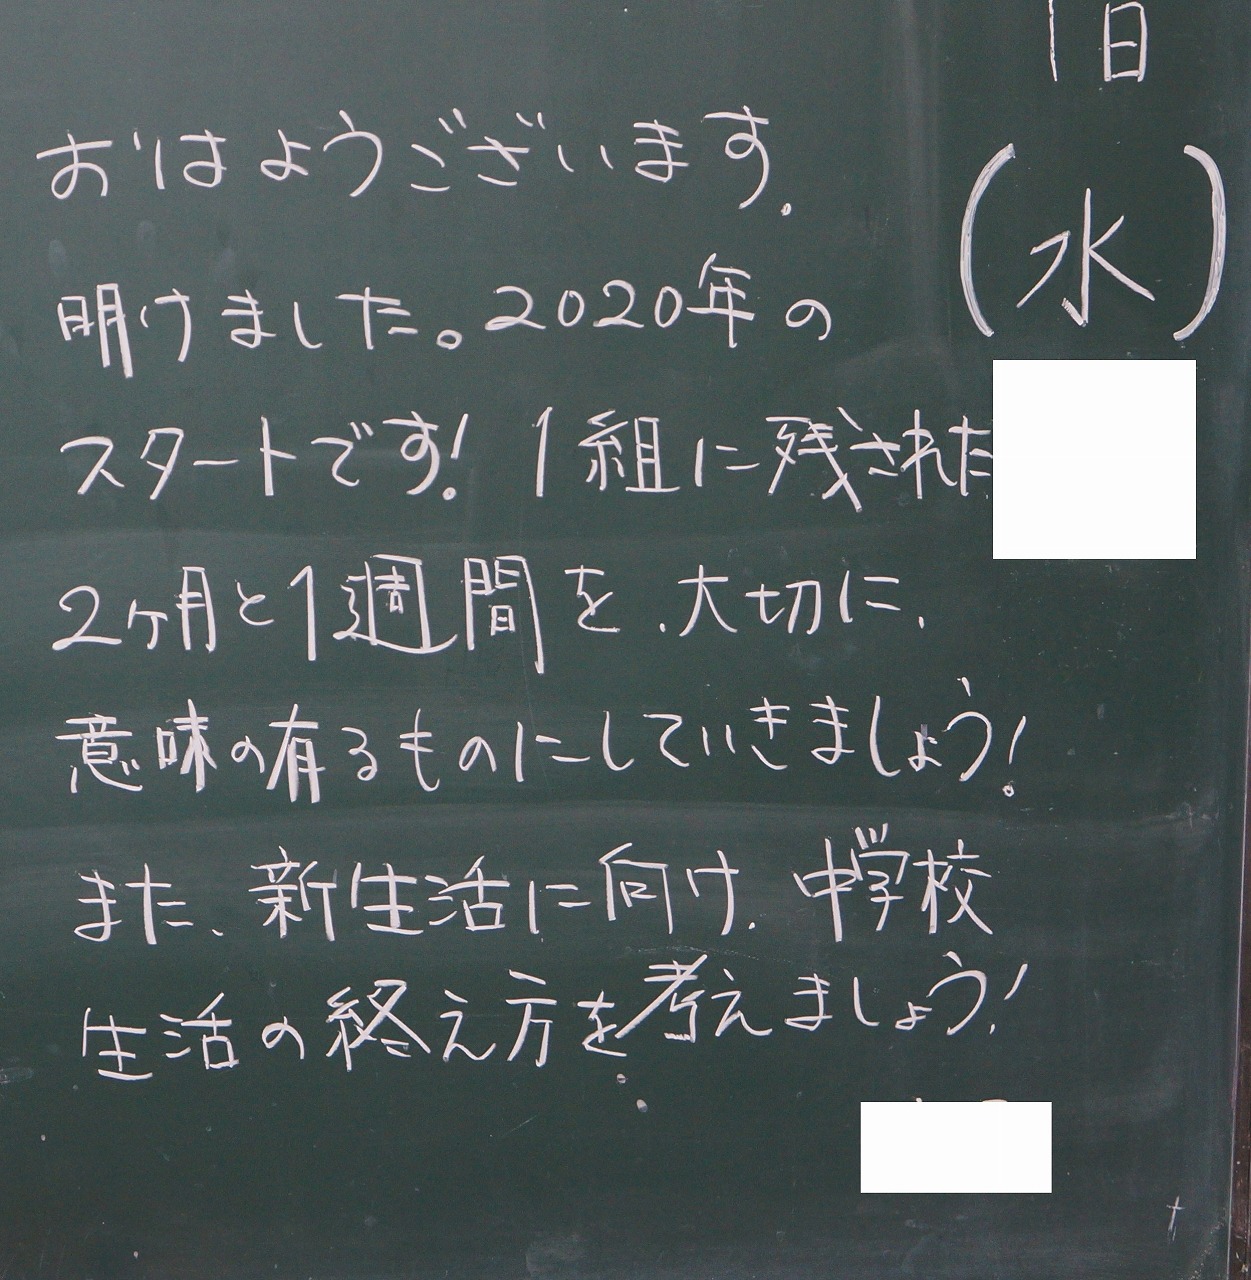 1日
(水)
おはようございます.
明けました。2020年の
スタートです! 1組に残された
2ヶ月と1週間を、大切に、
意味の有るものにしていきましょう!
また、新生活に向け、中学校
生活の終え方を考えましょう!